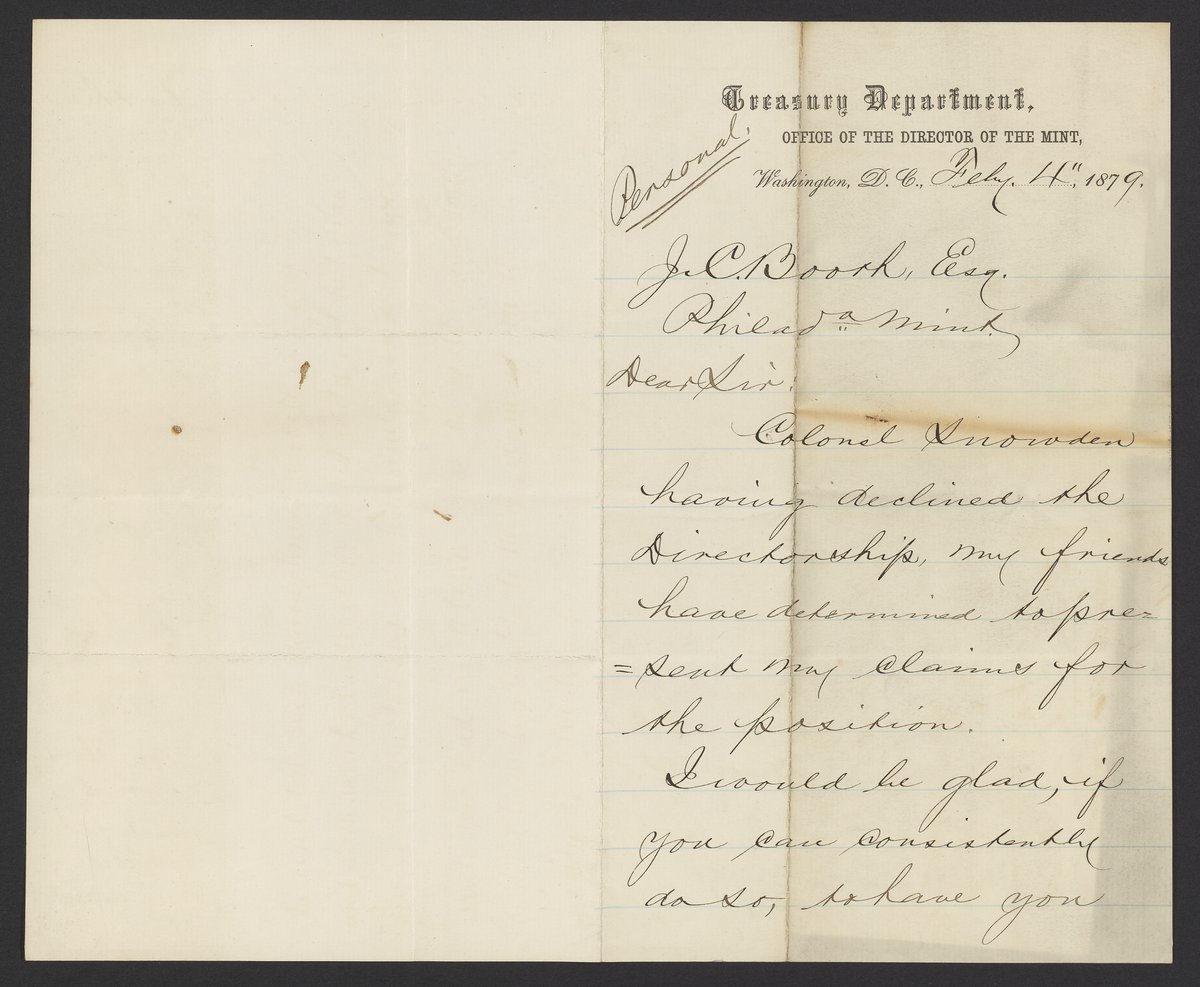 Treasury Department,
OFFICE OF THE DIRECTOR OF THE MINT,
Personal.
Washington, D. C., Feby. 4", 1879.
J. C. Booth, Esq.
Philada Mint.
Dear Sir:
Colonel Snowden
having declined the
Directorship, my friends
have determined to pre=
=sent my claims for
the position.
I would be glad, if
you can consistently
do so, to have you